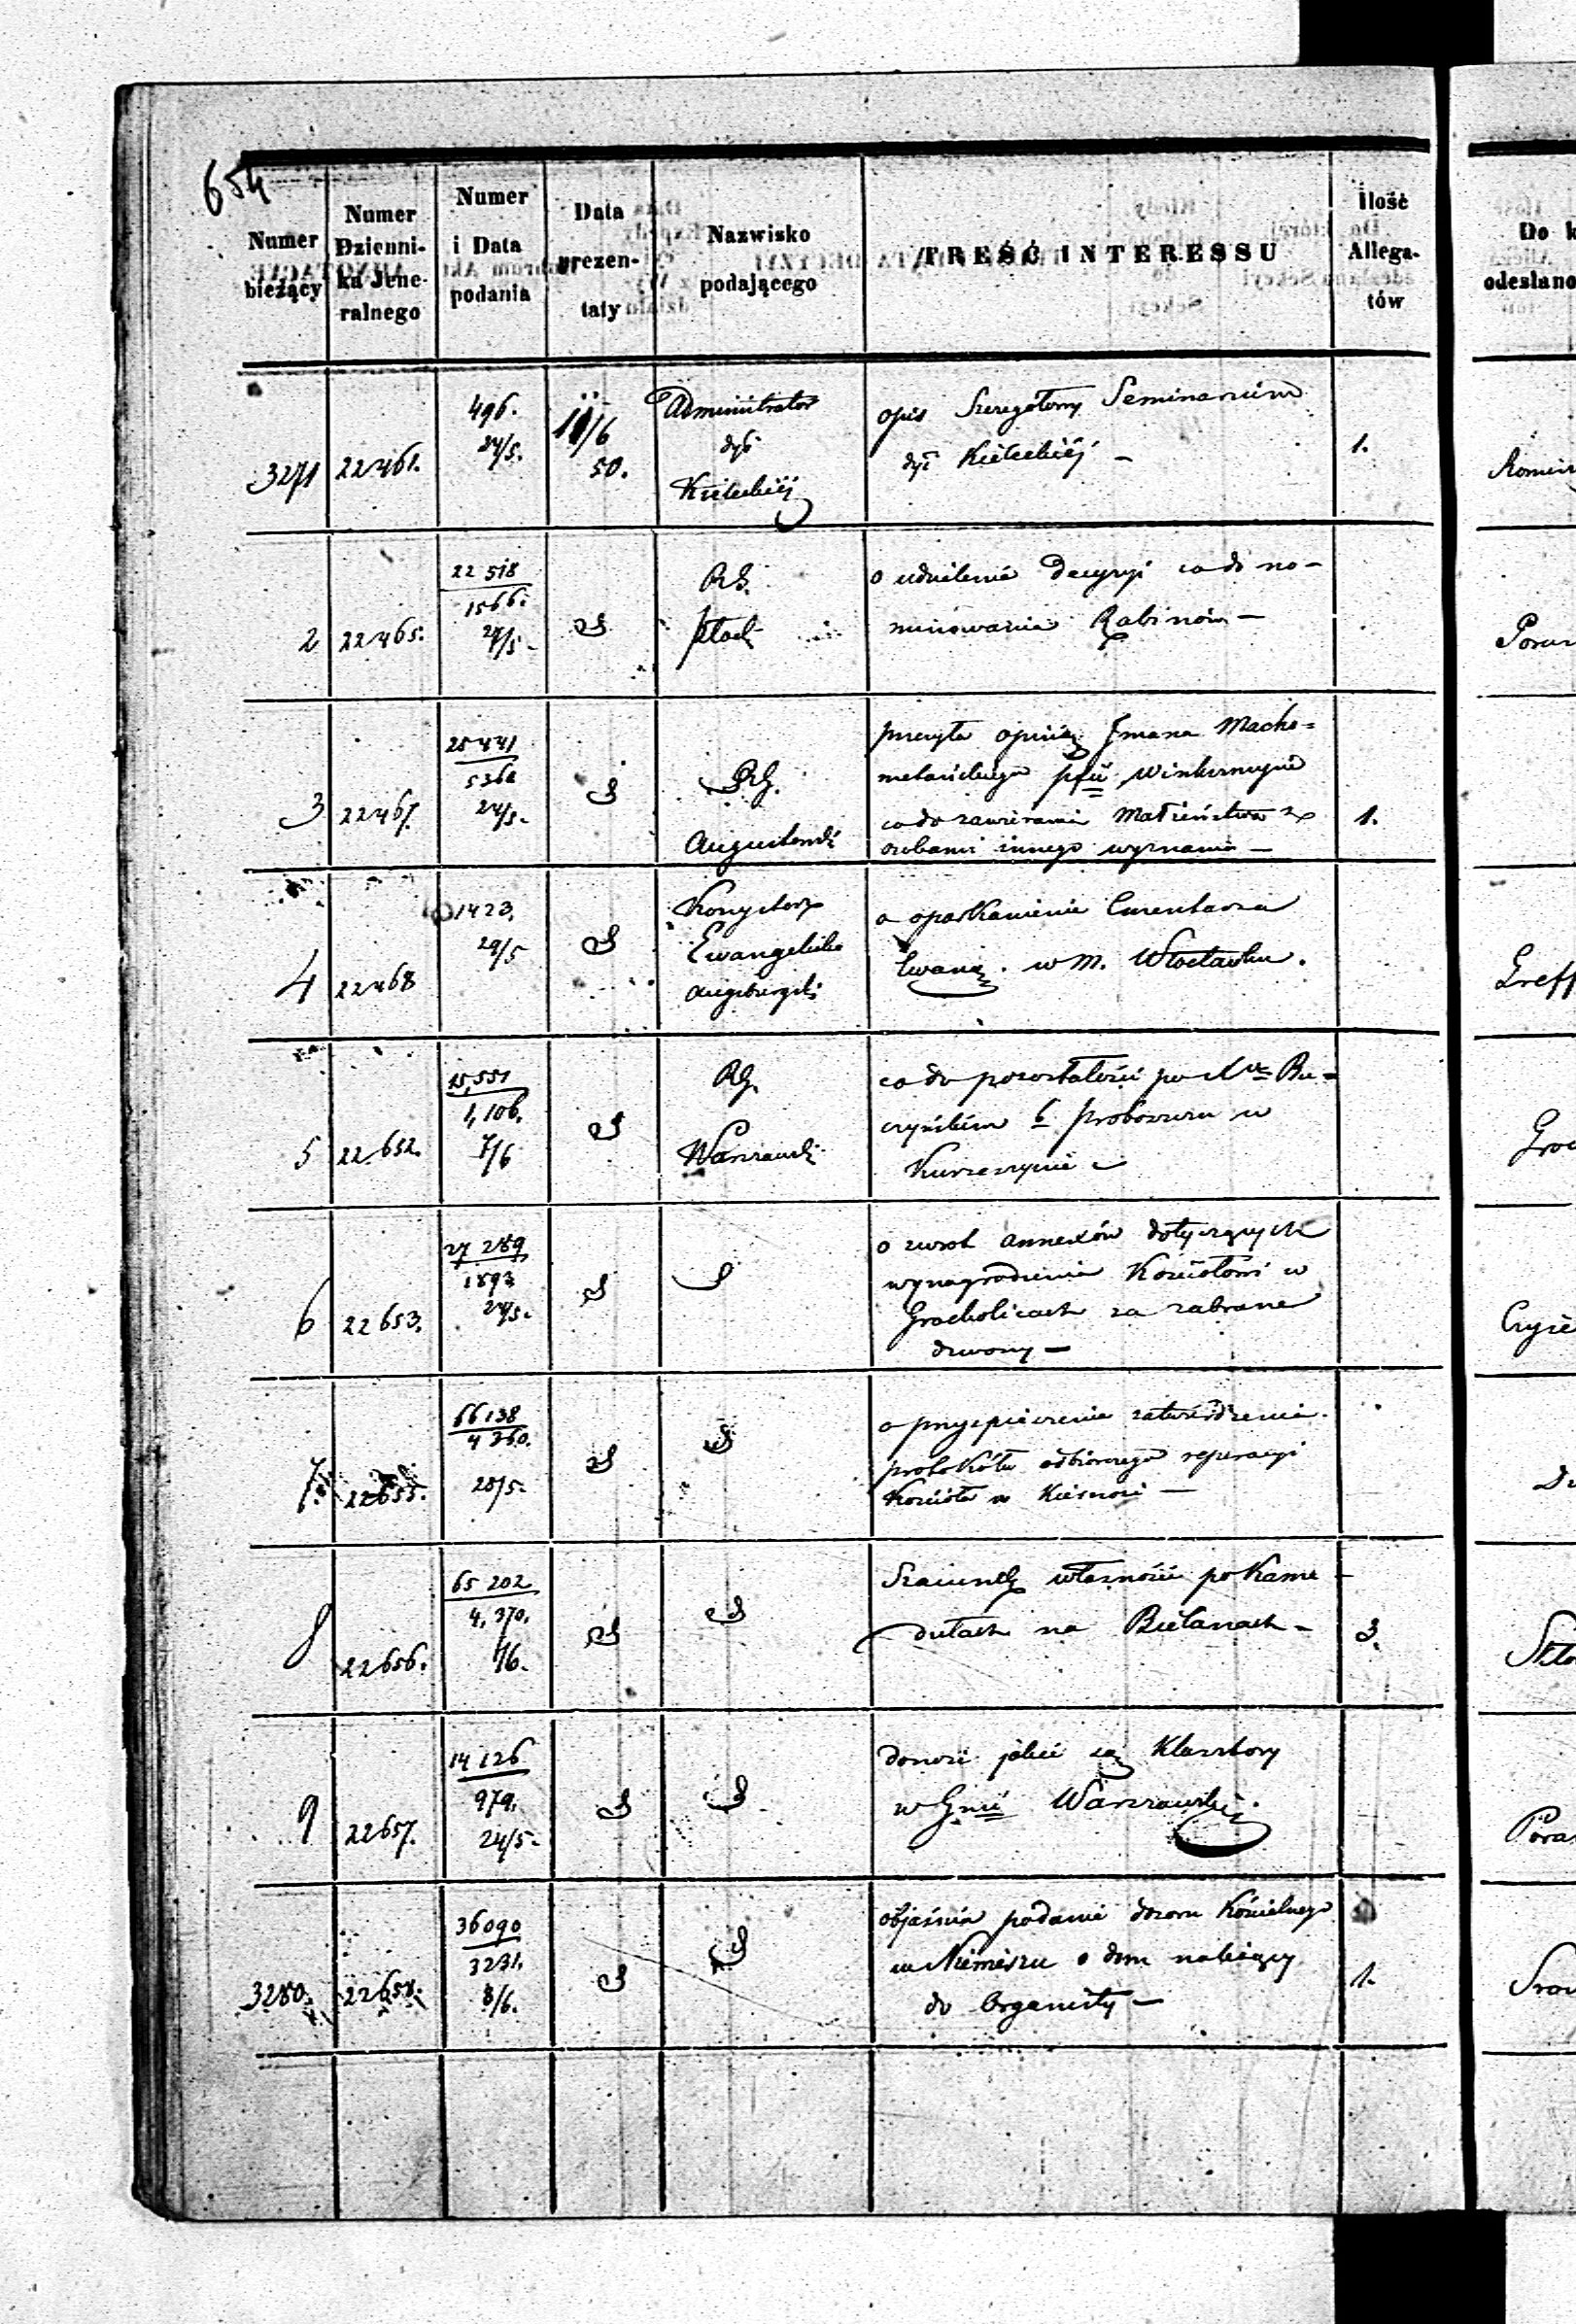 654
Numer bieżący
Numer Dzienni-
ka Jene-
ralnego
Numer
i Data
podania
Data
prezen-
taty
Nazwisko
podającego
TREŚĆ INTERESSU
Ilość
Allega-
tów
Do k
odesłano
3271 22461. 496. 24/5. 11/6 50.
Administrator
dyć
Kieleckiej
opis Szczegółowy Seminarium
dyć Kieleckiej –
1.
2 22465. 22 518
1566.
24/5.
RG.
Płock
o udzielenie decyzyi co do no-
minowania Rabinów –
3 22467. 25441
5362
24/5.
RG.
Augustowski
przesyła opinią Imana Macho=
metańskiego
co do zawierania Małżeństwa z
osobami innego wyznania –
1.
4 22468 1423.
29/5
Konsystorz
Ewangelicko
Augsburgski
o oparkanienie Cmentarza
Ewang. w M. Włocławku.
Greff
5 22652. 15,551
1,106.
7/6
RG.
Warszawski
co do pozostałości po
czyńskim b. proboszczu w
Kurzeszynie –
6 22653. 27 289
1893
24/5.
o zwrot annexów dotyczących
wynagrodzenia Kościołowi w
Grocholicach za zabrane
dzwony –
7. 22655. 66138
4 360.
28/5.
o przyspieszenie zatwierdzenia
protokółu odbiorczego reperacyi
Kościoła w
8 22656. 65 202
4,370.
Szacunek własności po Kame-
dułach na Bielanach –
3.
9 22657. 14 126
979.
24/5.
donosi jakie są Klasztory
w Gnii Warszawskiej.
3280. 22658. 36090
3231.
8/6.
objaśnia podanie dozoru Kościelnego
w o dom należący
do Organisty –
1.